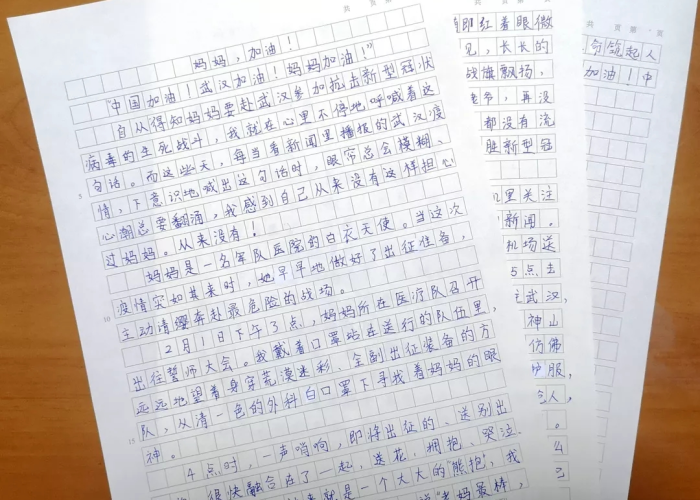 妈妈，加油！
“中国加油！武汉加油！妈妈加油！”
自从得知妈妈要赴武汉参加抗击新型冠状
病毒的生死战斗，我就在心里不停地呐喊着这
句话。而这些天，每当看新闻里播报的武汉疫
情，下意识地喊出这句话时，眼帘总会模糊、
心潮总要翻涌，我感到自己从来没有这样担心
过妈妈。从来没有！
妈妈是一名军队医院的白衣天使。当这次
疫情突如其来时，她早早地做好了出征准备，
主动请缨奔赴最危险的战场。
2月1日下午3点，妈妈所在医疗队召开
出征誓师大会。我戴着口罩站在送行的队伍里，
远远地望着身穿荒漠迷彩、全副出征装备的方
队，从清一色的外科白口罩下寻找着妈妈的眼
神。
4点时，一声哨响，即将出征的、送别出
很快融合在了一起，送花、拥抱、哭泣
就是一个大大的“熊抱”，我
“老妈最棒，
即红着眼微
见，长长的
战旗飘扬，
爷，再没
都没有流
胜新型冠
里关注
新闻。
机场送
5点去
武汉，
神山
仿佛
服，
人，
。
4
命筑起人
加油！中